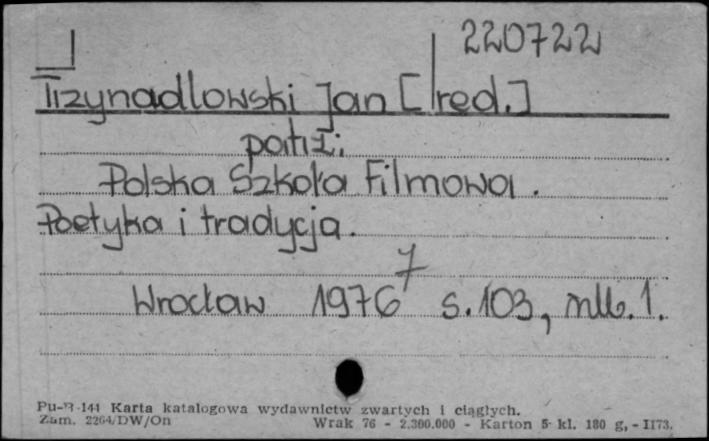 220722
Trzynadlowski Jan [red.]
patrz:
Polska Szkoła Filmowa.
Poetyka i tradycja.
7
Wrocław 1976 s. 103, nlb. 1.
Pu-B-141 Karta katalogowa wydawnictw zwartych i ciągłych.
Zam. 2264/DW/On Wrak 76 - 2.300.000 - Karton 5 kl. 180 g, - II73.